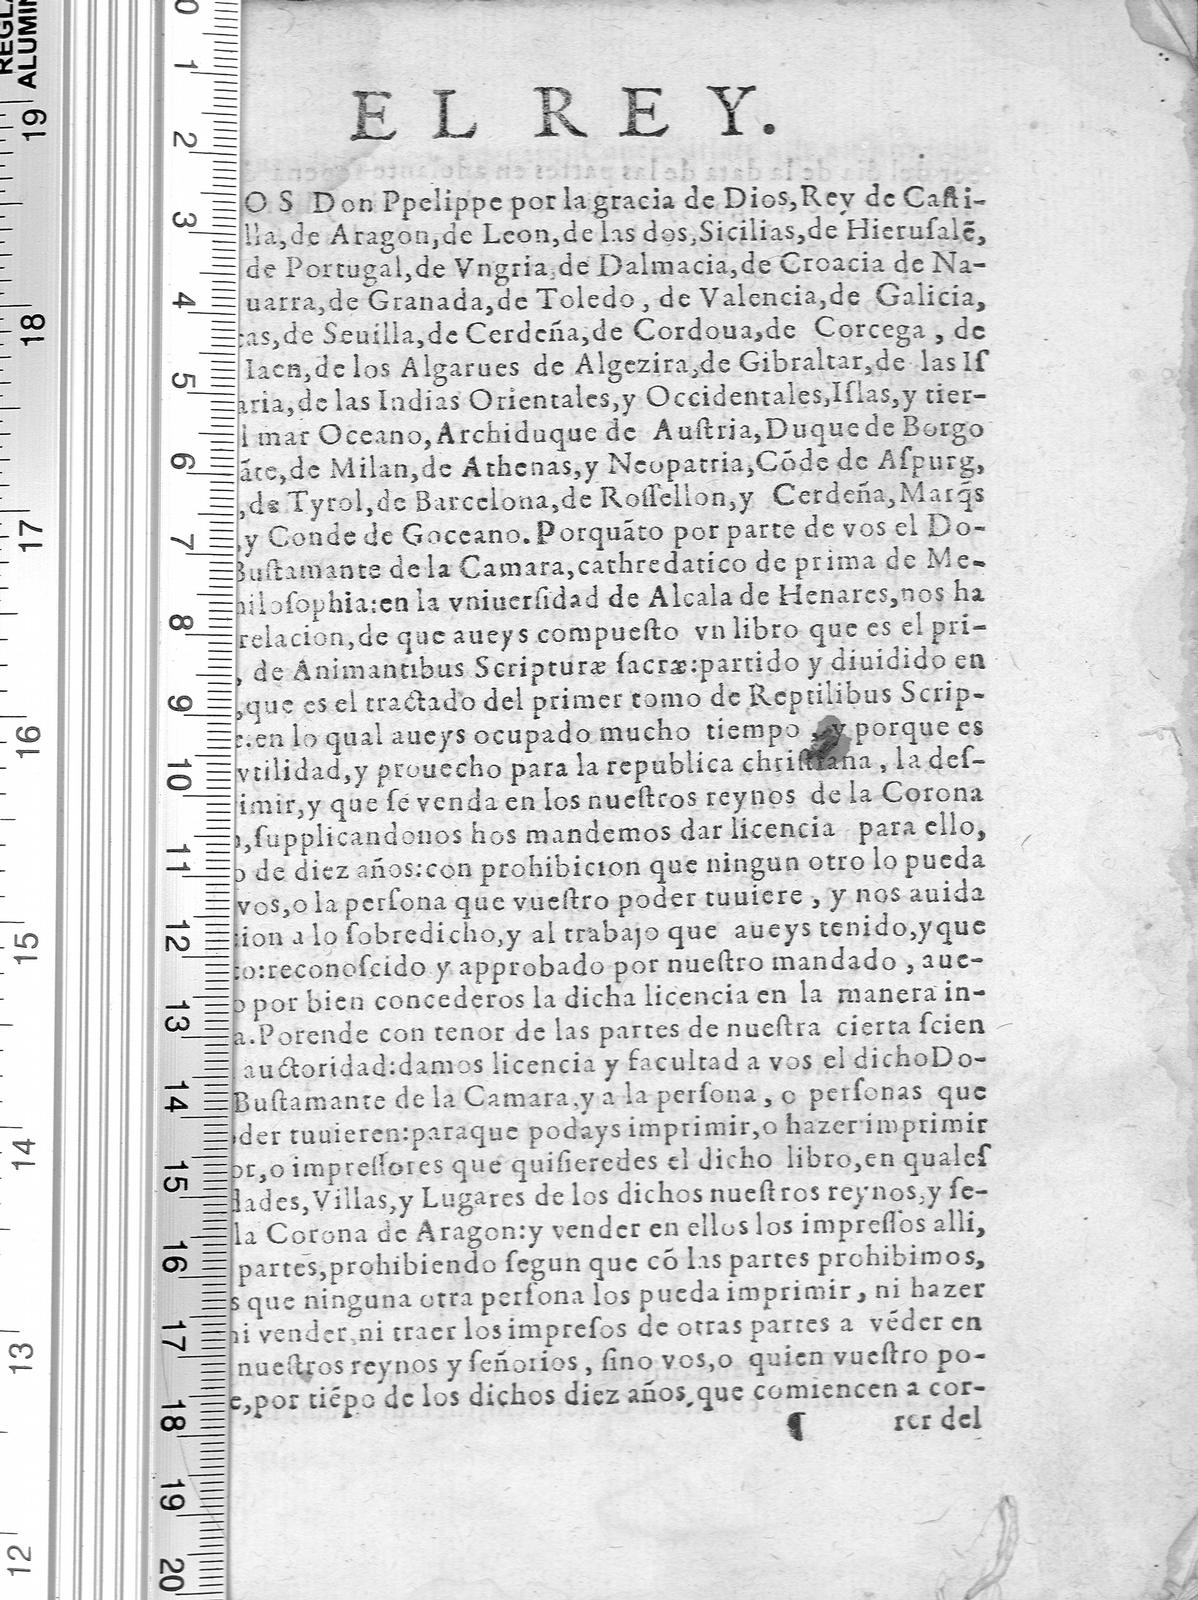 EL REY.
OS Don Ppelippe por la gracia de Dios, Rey de Caſti-
lla, de Aragon, de Leon, de las dos, Sicilias, de Hieruſalẽ,
de Portugal, de Vngria, de Dalmacia, de Croacia de Na-
uarra, de Granada, de Toledo, de Valencia, de Galicia,
cas, de Seuilla, de Cerdeña, de Cordoua, de Corcega, de
Iaen, de los Algarues de Algezira, de Gibraltar, de las Iſ
aria, de las Indias Orientales, y Occidentales, Iſlas, y tier-
l mar Oceano, Archiduque de Auſtria, Duque de Borgo
ãte, de Milan, de Athenas, y Neopatria, Cõde de Aſpurg,
, de Tyrol, de Barcelona, de Roſſellon, y Cerdeña, Marq̃s
, y Conde de Goceano. Porquãto por parte de vos el Do-
Buſtamante de la Camara, cathredatico de prima de Me-
hiloſophia: en la vniuerſidad de Alcala de Henares, nos ha
relacion, de que aueys compueſto vn libro que es el pri-
, de Animantibus Scripturæ ſacræ: partido y diuidido en
, que es el tractado del primer tomo de Reptilibus Scrip-
e: en lo qual aueys ocupado mucho tiempo, y porque es
vtilidad, y prouecho para la republica chriſtiana, la deſ-
imir, y que ſe venda en los nueſtros reynos de la Corona
, ſupplicandonos hos mandemos dar licencia para ello,
o de diez años: con prohibicion que ningun otro lo pueda
vos, o la perſona que vueſtro poder tuuiere, y nos auida
cion a lo ſobredicho, y al trabajo que aueys tenido, y que
to: reconoſcido y approbado por nueſtro mandado, aue-
o por bien concederos la dicha licencia en la manera in-
a. Porende con tenor de las partes de nueſtra cierta ſcien
auctoridad: damos licencia y facultad a vos el dicho Do-
Buſtamante de la Camara, y a la perſona, o perſonas que
der tuuieren: paraque podays imprimir, o hazer imprimir
or, o impreſſores que quiſieredes el dicho libro, en qualeſ
dades, Villas, y Lugares de los dichos nueſtros reynos, y ſe-
la Corona de Aragon: y vender en ellos los impreſſos alli,
partes, prohibiendo ſegun que cõ las partes prohibimos,
s que ninguna otra perſona los pueda imprimir, ni hazer
ni vender, ni traer los impreſos de otras partes a vẽder en
nueſtros reynos y ſeñorios, ſino vos, o quien vueſtro po-
e, por tiẽpo de los dichos diez años, que comiencen a cor-
¶ rer del
REGLA
ALUMIN
19
18
17
16
15
14
13
12
0
1
2
3
4
5
6
7
8
9
10
11
12
13
14
15
16
17
18
19
20